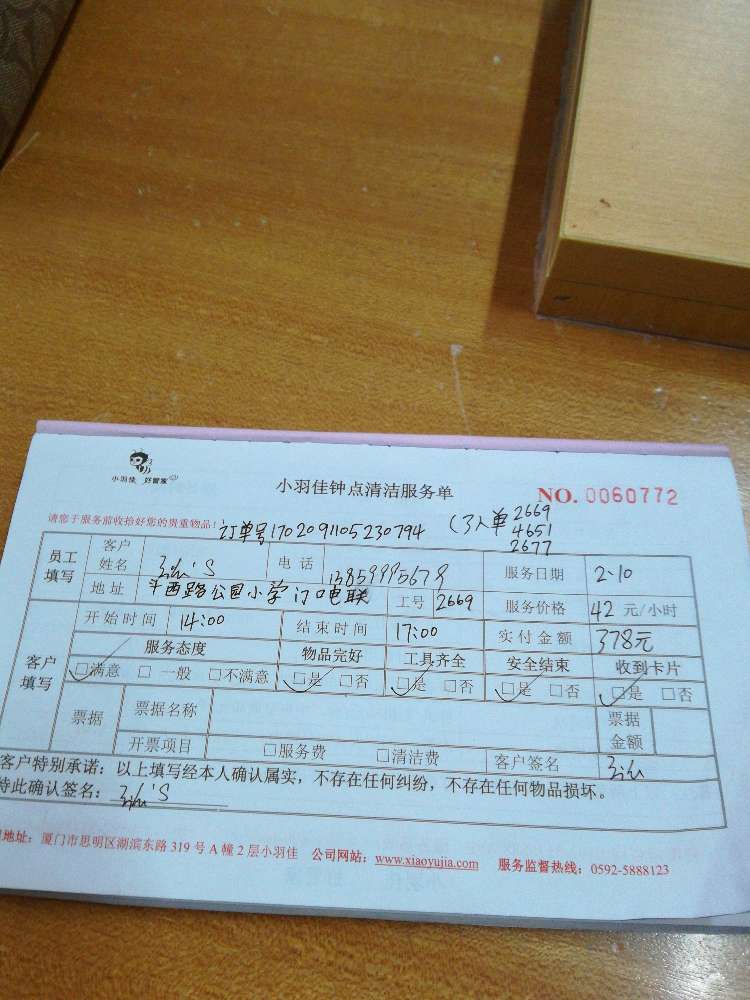 小羽佳 好管家
小羽佳钟点清洁服务单
NO. 0060772
请您于服务前收拾好您的贵重物品!
订单号1702091105230794 (3人单 2669
4651
2677
员工填写 客户姓名 电话 服务日期 2-10
地址 斗西路公园小学门口电联 工号 2669 服务价格 42 元/小时
客户填写 开始时间 14:00 结束时间 17:00 实付金额 378元
服务态度 物品完好 工具齐全 安全结束 收到卡片
☑满意 □一般 □不满意 ☑是 □否 ☑是 □否 ☑是 □否 ☑是 □否
票据 票据名称 票据金额
开票项目 □服务费 □清洁费 客户签名
客户特别承诺：以上填写经本人确认属实，不存在任何纠纷，不存在任何物品损坏。
特此确认签名：
地址：厦门市思明区湖滨东路 319 号 A 幢 2 层小羽佳 公司网站：www.xiaoyujia.com 服务监督热线：0592-5888123